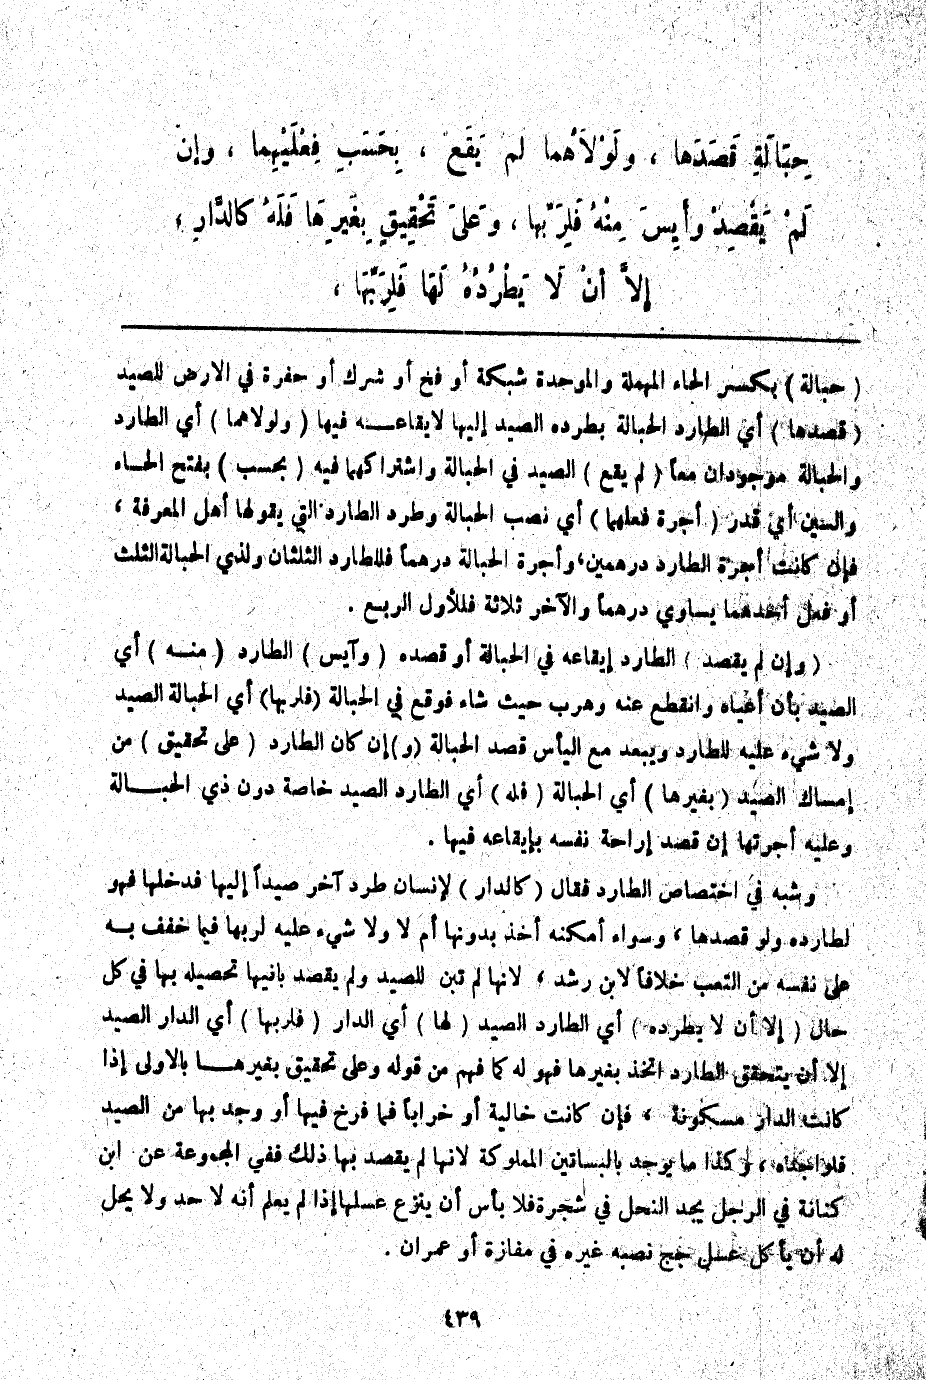 حِبَالَةِ قَصَدَها ، ولَوْلاَهُما لَم يَقَع ، بِحَسَبِ فِعْلَيْهِما ، وإن
لَمْ يَقْصِدْ وأَيِسَ مِنْهُ فَلِرَبِّها ، وَعَلىَ تَحْقِيقٍ بِغَيرِهَا فَلَهُ كالدَّارِ ،
إلاَّ أنْ لَا يَطْرُدُهُ لَهَا فَلِرَبِّهَا ،
( حبالة ) بكسر الحاء المهملة والموحدة شبكة أو فخ أو شرك أو حفرة في الارض للصيد
( قصدها ) أي الطارد الحبالة بطرده الصيد إليها لايقاعه فيها ( ولولاهما ) أي الطارد
والحبالة موجودان معاً ( لم يقع ) الصيد في الحبالة واشتراكهما فيه ( بحسب ) بفتح الحاء
والسين أي قدر ( أجرة فعلهما ) أي نصب الحبالة وطرد الطارد التي يقولها أهل المعرفة ،
فإن كانت أجرة الطارد درهمين، وأجرة الحبالة درهماً فللطارد الثلثان ولذي الحبالة الثلث
أو فعل أحدهما يساوي درهماً والآخر ثلاثة فللأول الربع .
( وإن لم يقصد ) الطارد إيقاعه في الحبالة أو قصده ( وآيس ) الطارد ( منه ) أي
الصيد بأن أعياه وانقطع عنه وهرب حيث شاء فوقع في الحبالة (فلربها) أي الحبالة الصيد
ولا شيء عليه للطارد ويبعد مع اليأس قصد الحبالة (و)إن كان الطارد ( على تحقيق ) من
إمساك الصيد ( بغيرها ) أي الحبالة ( فله ) أي الطارد الصيد خاصة دون ذي الحبالة
وعليه أجرتها إن قصد إراحة نفسه بإيقاعه فيها .
وشبه في اختصاص الطارد فقال ( كالدار ) لإنسان طرد آخر صيداً إليها فدخلها فهو
لطارده ولو قصدها ، وسواء أمكنه أخذ بدونها أم لا ولا شيء عليه لربها فيما خفف به
على نفسه من التعب خلافاً لابن رشد ، لانها لم تبن للصيد ولم يقصد بانيها تحصيله بها في كل
حال ( إلا أن لا يطرده ) أي الطارد الصيد ( لها ) أي الدار ( فلربها ) أي الدار الصيد
إلا أن يتحقق الطارد اتخذ بغيرها فهو له كما فهم من قوله وعلى تحقيق بغيرها بالاولى إذا
كانت الدار مسكونة ، فإن كانت خالية أو خراباً فما فرخ فيها أو وجد بها من الصيد
فلواجده ، وكذا ما يوجد بالبساتين المملوكة لانها لم يقصد بها ذلك ففي المجموعة عن ابن
كنانة في الرجل يجد النحل في شجرة فلا بأس أن ينزع عسلها إذا لم يعلم أنه لا حد ولا يحل
له أن يأكل عسل جبح نصبه غيره في مفازة أو عمران .
٤٣٩